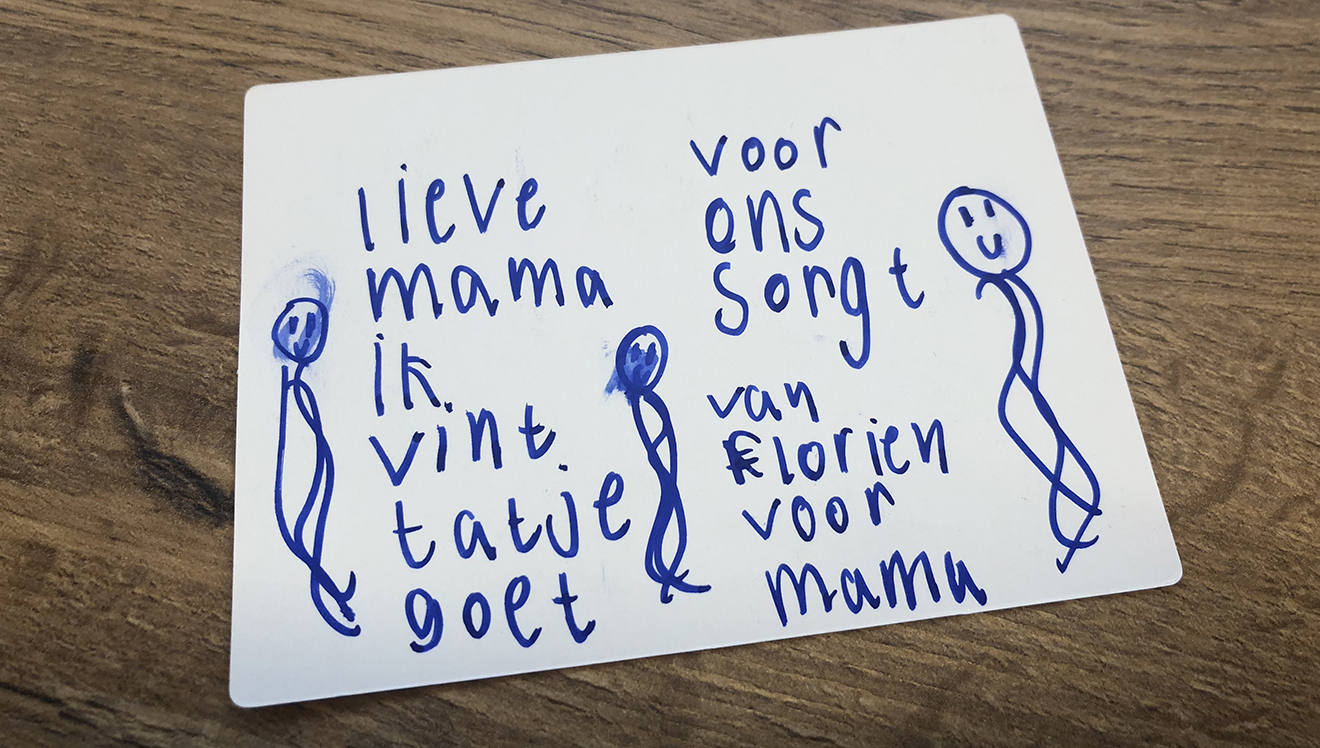 lieve
mama
ik
vint
tatje
goet
voor
ons
sorgt
van
Florien
voor
mama